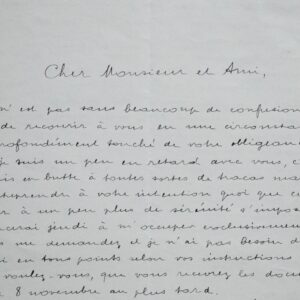 Cher Monsieur et Ami,
n'est pas sans beaucoup de confusion
de recourir à vous en une circonstan
profondément touché de votre obligean
je suis un peu en retard avec vous, c
is en butte à toutes sortes de tracas mat
treprendre à votre intention quoi que ce
r à un peu plus de sérénité s'impos
cerai jeudi à m'occuper exclusivemen
s me demandez et je n'ai pas besoin d
i en tous points selon vos instructions
voulez-vous, que vous recevrez les docum
8 novembre au plus tard.